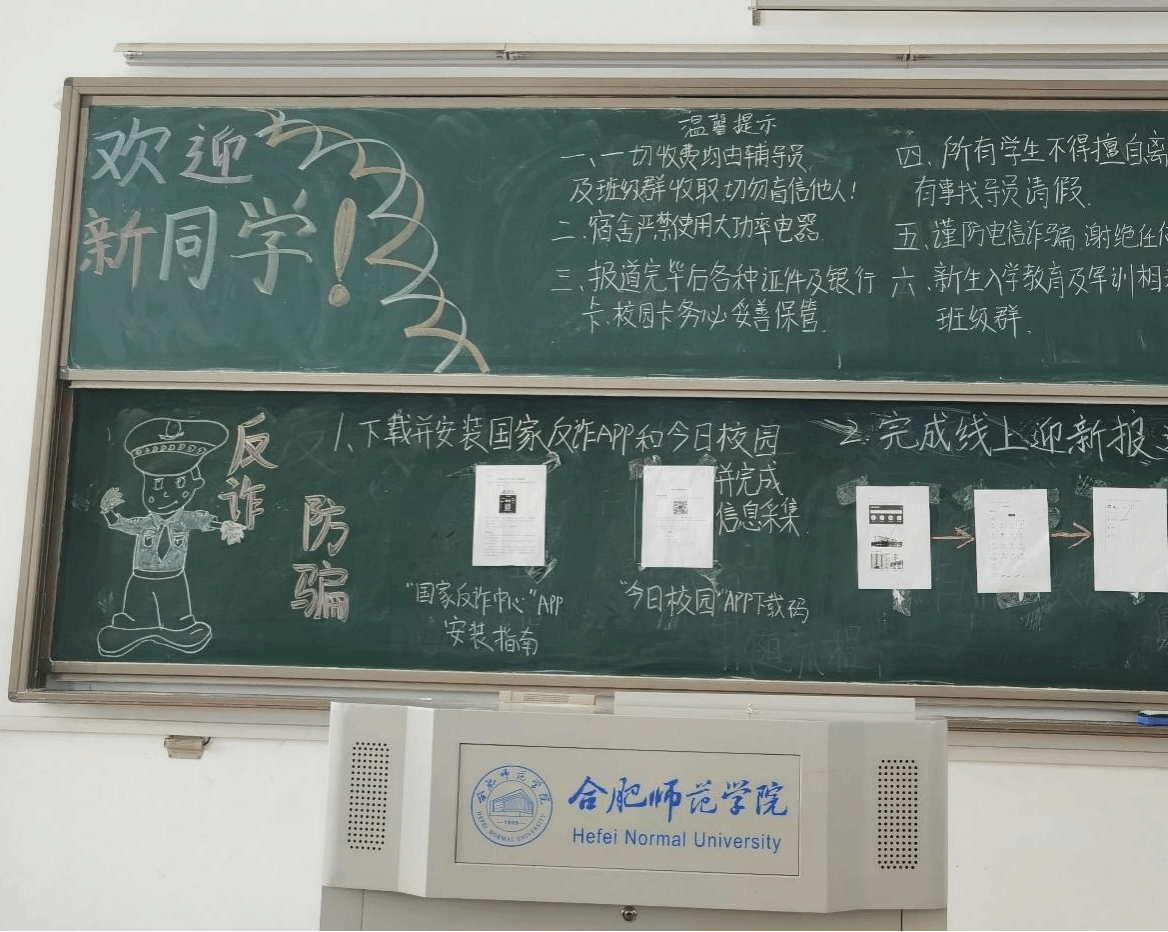 欢迎
新同学!
温馨提示
一、一切收费均由辅导员
及班级群收取,切勿盲信他人!
二、宿舍严禁使用大功率电器.
三、报道完毕后各种证件及银行
卡、校园卡务必妥善保管.
四、所有学生不得擅自离
有事找导员请假.
五、谨防电信诈骗,谢绝任何
六、新生入学教育及军训相关
班级群.
反诈
防骗
1、下载并安装国家反诈APP和今日校园
并完成
信息采集.
"国家反诈中心"APP
安装指南
"今日校园"APP下载码
2.完成线上迎新报
合肥师范学院
HEFEI NORMAL UNIVERSITY
1955
合肥师范学院
Hefei Normal University